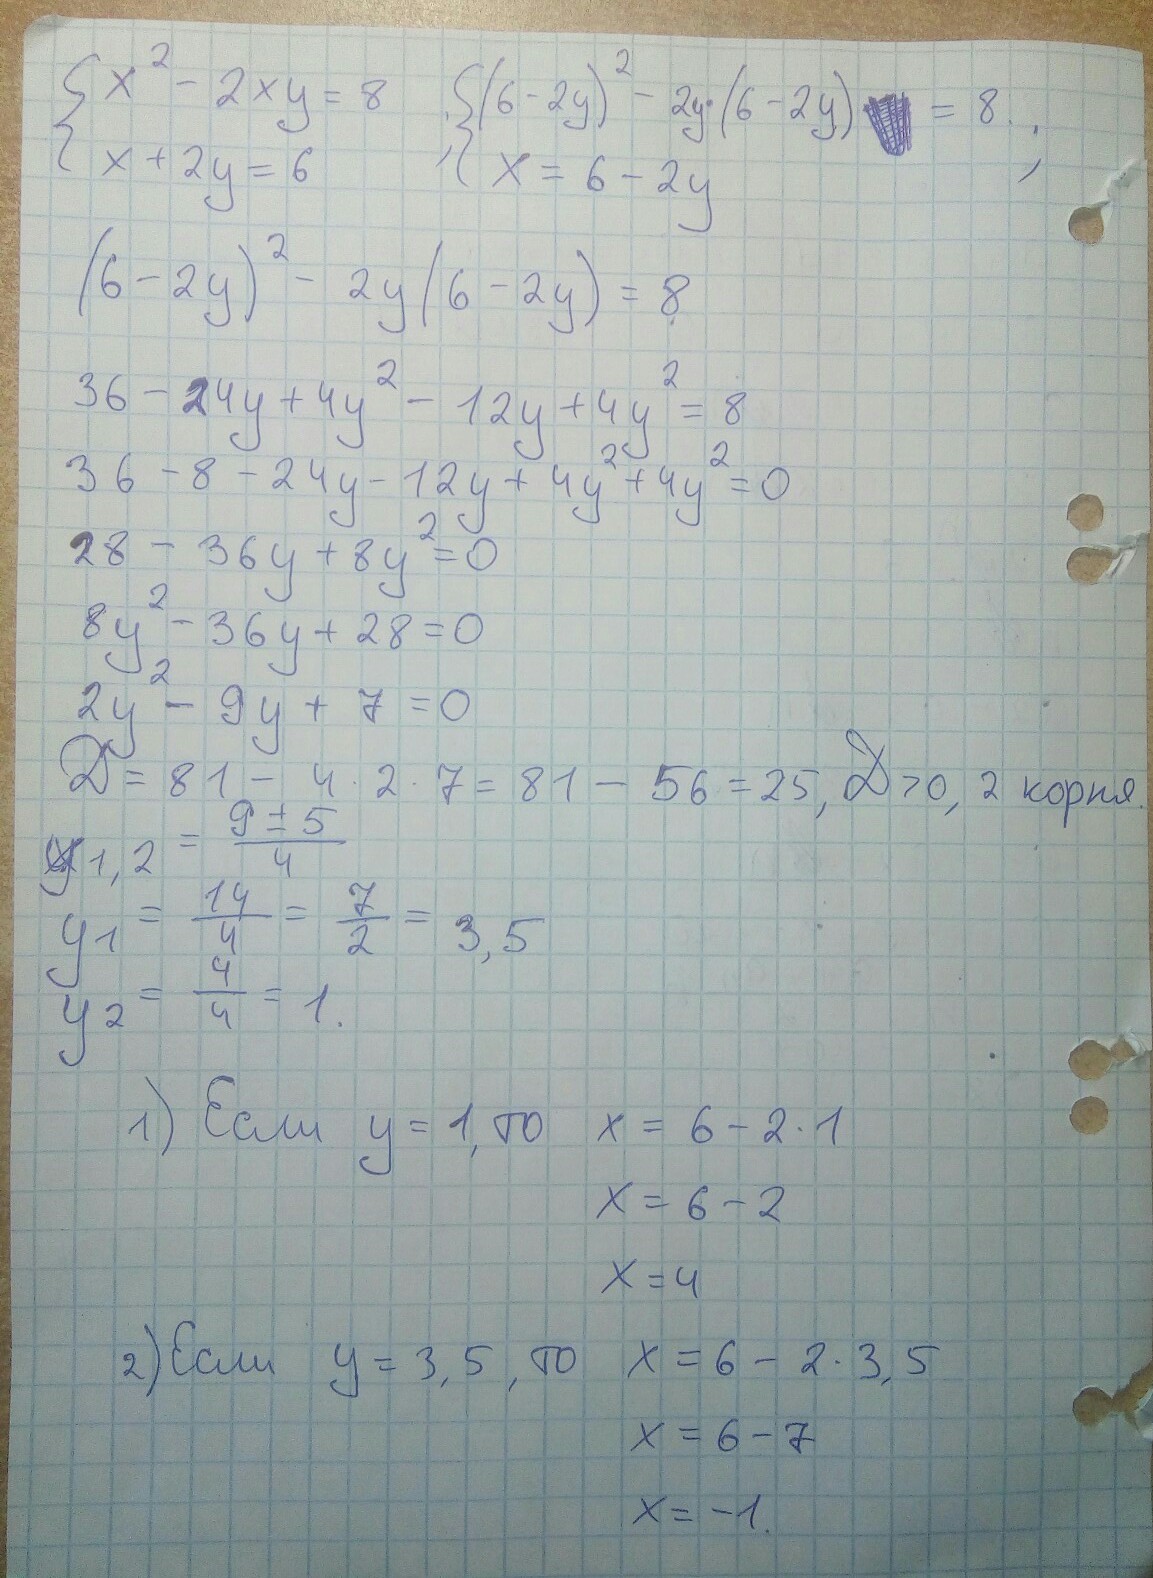 { x² - 2xy = 8 ; { (6 - 2y)² - 2y·(6 - 2y) = 8. ;
x + 2y = 6 x = 6 - 2y
(6 - 2y)² - 2y(6 - 2y) = 8
36 - 24y + 4y² - 12y + 4y² = 8
36 - 8 - 24y - 12y + 4y² + 4y² = 0
28 - 36y + 8y² = 0
8y² - 36y + 28 = 0
2y² - 9y + 7 = 0
D = 81 - 4·2·7 = 81 - 56 = 25, D > 0, 2 корня.
y1,2 = (9 ± 5)/4
y1 = 14/4 = 7/2 = 3,5
y2 = 4/4 = 1.
1) Если y = 1, то x = 6 - 2·1
x = 6 - 2
x = 4
2) Если y = 3,5, то x = 6 - 2·3,5
x = 6 - 7
x = -1.